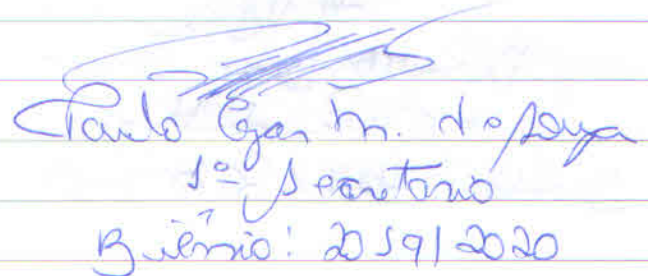 Paulo Egon M. de Souza
1º Secretario
Biênio: 2019/2020